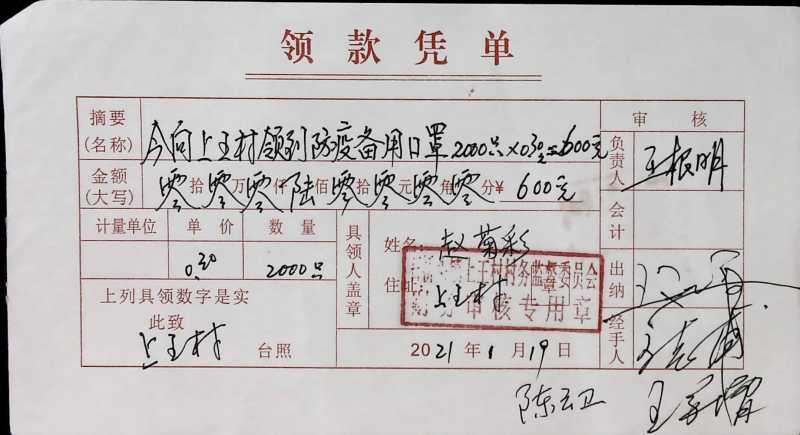 领款凭单
摘要(名称) 今向上王村领到防疫备用口罩2000只×0.30=600元
审核
负责人 王根明
金额(大写) 零拾零万零仟陆佰零拾零元零角零分¥600元
会计
计量单位 单价 数量
0.30 2000只
具领人盖章
姓名: 赵菊彩
住址: 上王村
上王村村务监督委员会
财务审核专用章
出纳
上列具领数字是实
此致
上王村 台照
2021年1月19日
经手人
陈云卫